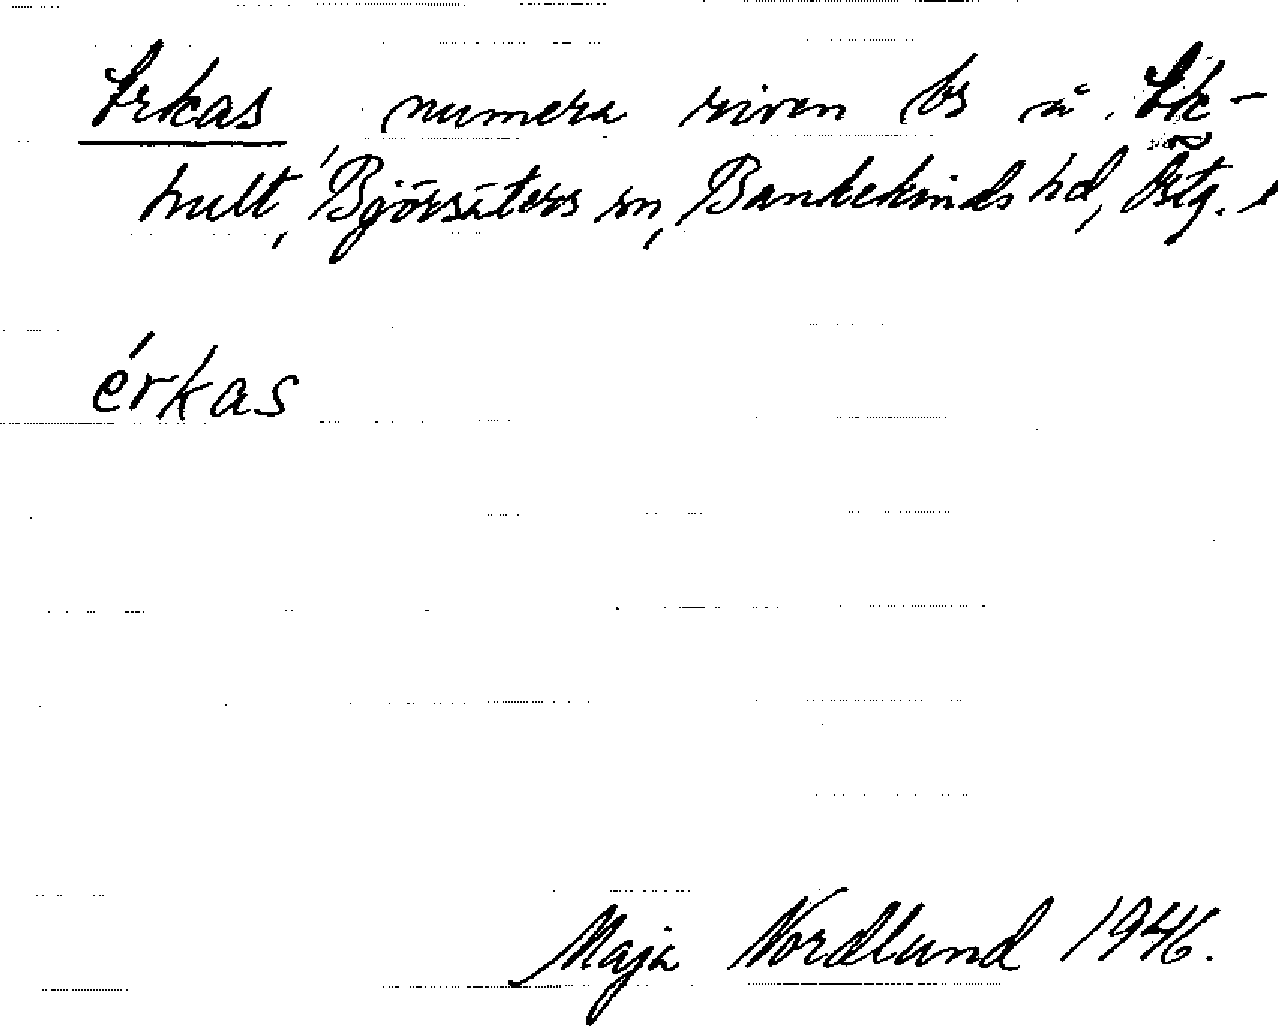 Erkas numera riven bs å Ek-
hult, Björsäters sn, Bankekinds hd, Östg. l
érkas
Maja Nordlund 1946.